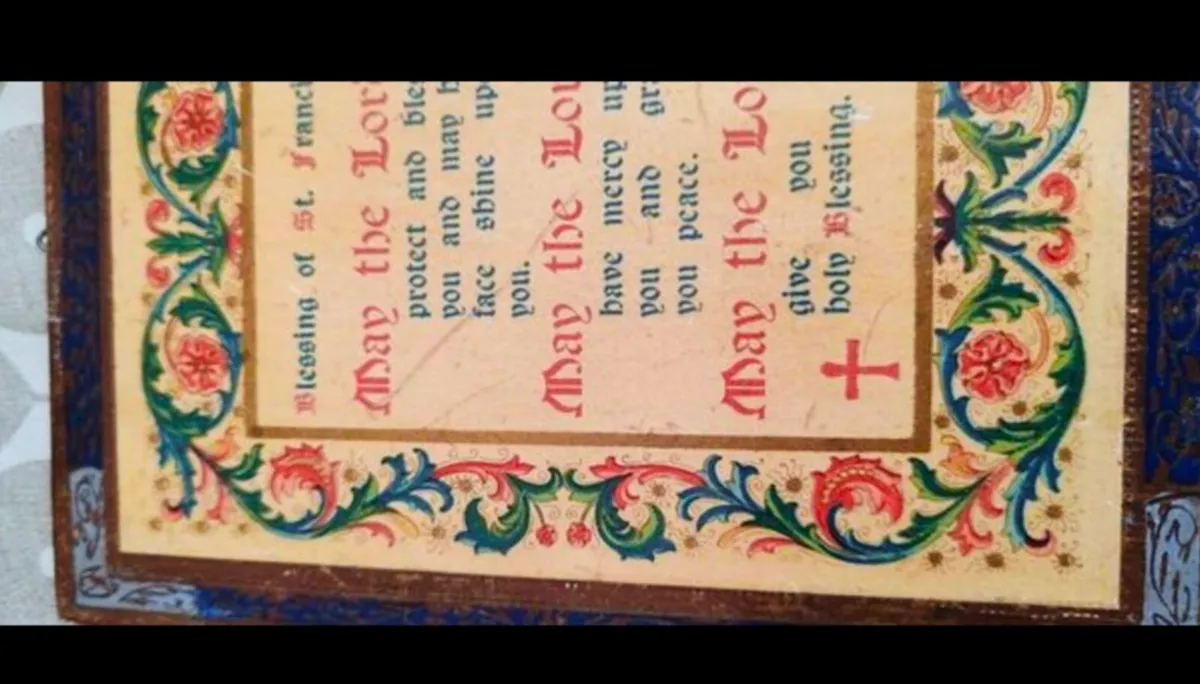 Blessing of St. Franci
May the Lor
protect and bles
you and may h
face shine up
you.
May the Lo
have mercy up
you and gr
you peace.
May the Lo
give you
holy Blessing.